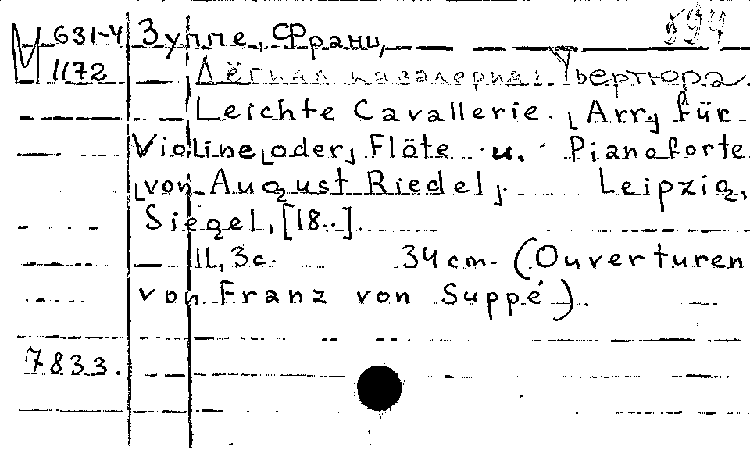 М 631-4 Зуппе, Франц, 594
1172 Лёгкая кавалерия: Увертюра.
Leichte Cavallerie. [Arr] für
Violine [oder] Flöte u. Pianoforte
[von August Riedel]. Leipzig,
Siegel, [18..].
11, 3 с. 34 cm. (Ouverturen
von Franz von Suppé).
7833.